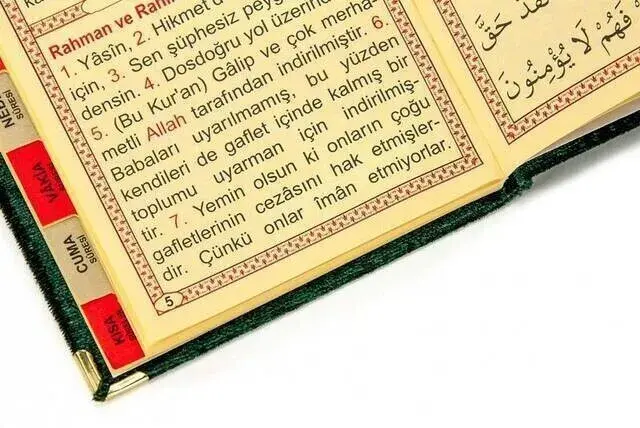 Rahman ve Rahi
1. Yâsîn, 2. Hikmet
için, 3. Sen şüphesiz peyg
densin. 4. Dosdoğru yol üzerin
5. (Bu Kur'an) Gâlip ve çok merha-
metli Allah tarafından indirilmiştir. 6.
Babaları uyarılmamış, bu yüzden
kendileri de gaflet içinde kalmış bir
toplumu uyarman için indirilmiş-
tir. 7. Yemin olsun ki onların çoğu
gafletlerinin cezâsını hak etmişler-
dir. Çünkü onlar îmân etmiyorlar.
5
حَقَّ
فَهُمْ لَا يُؤْمِنُونَ
NEB
SÛRESİ
VÂKIA
CUMA
SÛRESİ
KISA